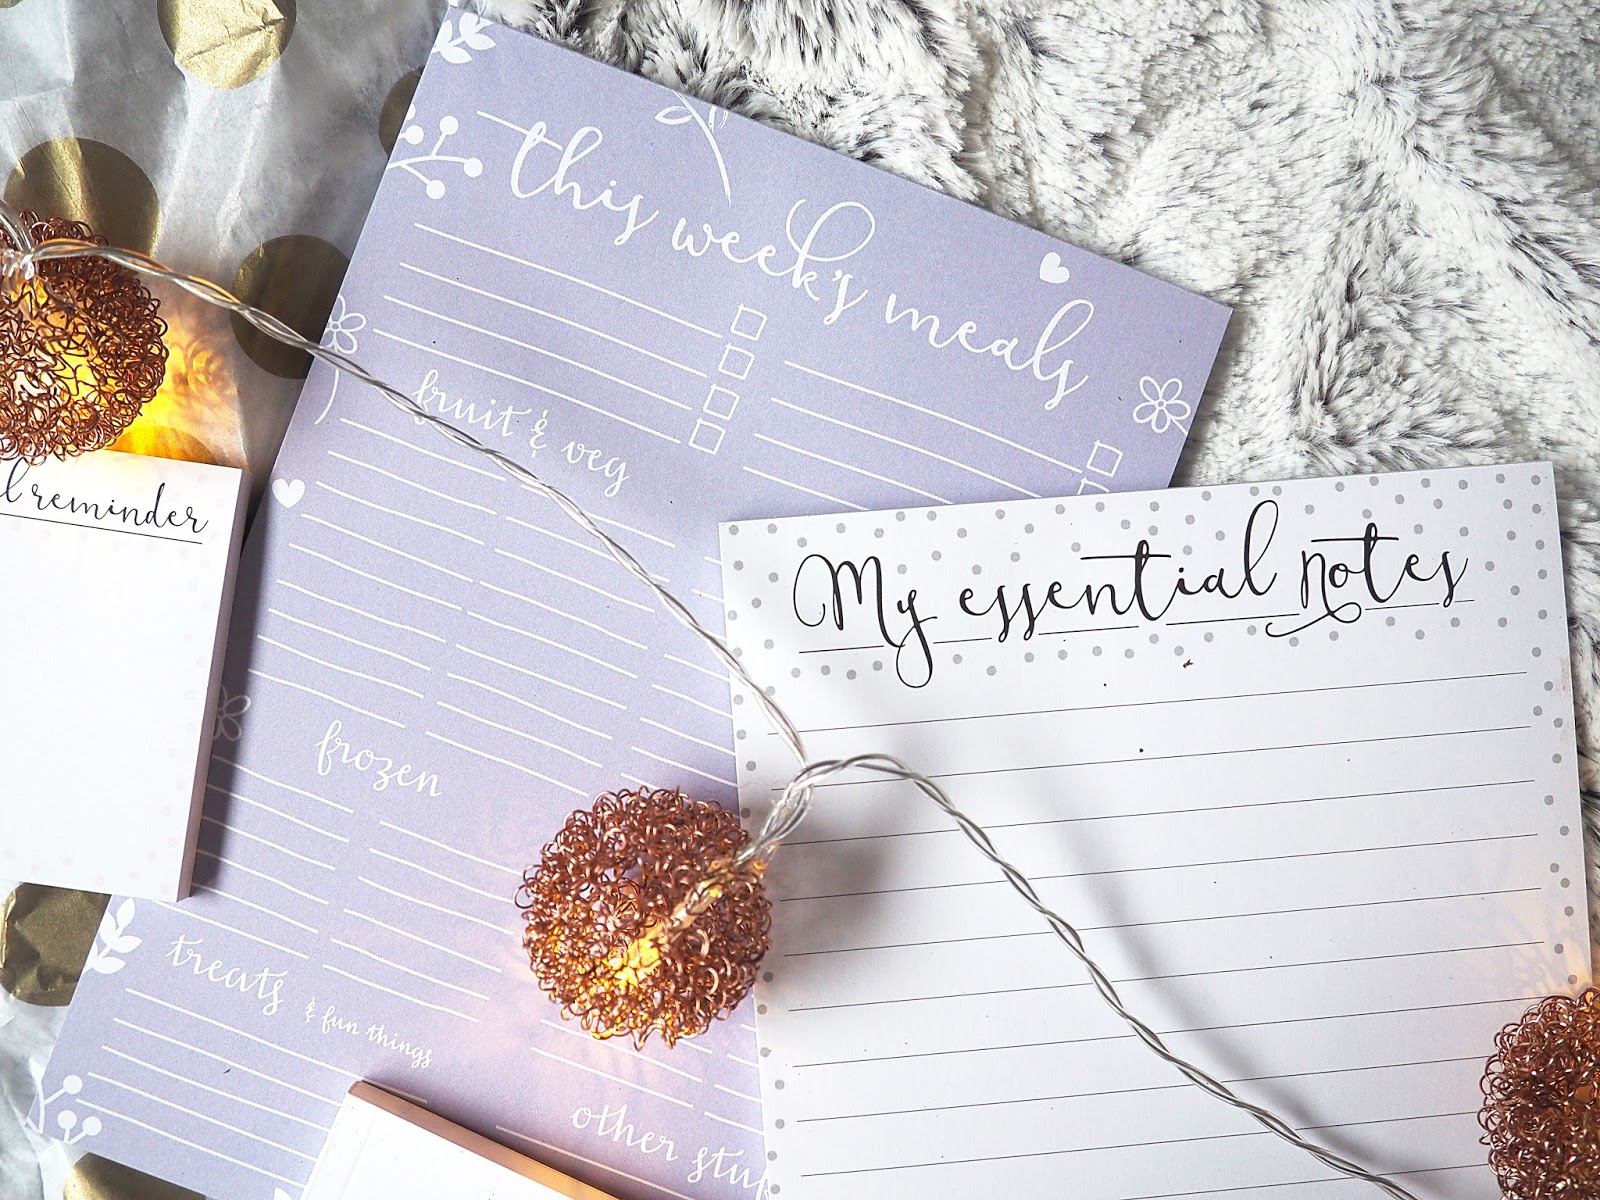 this week's meals
fruit & veg
frozen
treats
& fun things
other
reminder
My essential notes